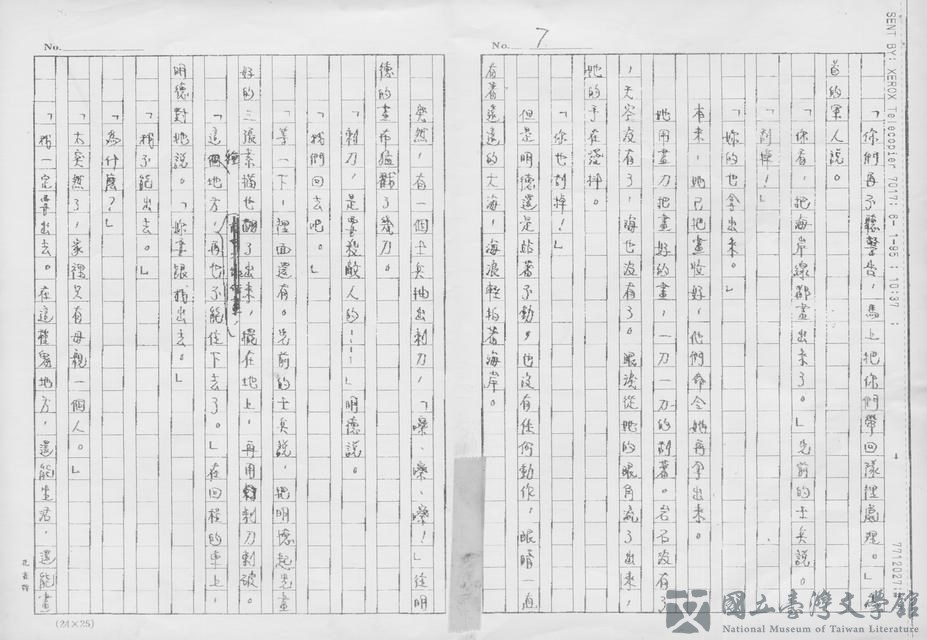 No. 7
「你們再不聽警告，馬上把你們帶回隊裡處理。」為
首的軍人說。
「你看，把海岸線都畫出來了。」先前的士兵說。
「刮掉！」
「妳的也拿出來。」
本來，她已把畫收好，他們命令她再拿出來。
她用畫刀把畫好的畫，一刀一刀的刮著。岩石沒有了
，天空沒有了，海也沒有了。眼淚從她的眼角流了出來，
她的手在發抖。
「你也刮掉！」
但是明德還是站著不動，也沒有任何動作，眼睛一直
看著遠遠的大海，海浪輕拍著海岸。
No.
突然，有一個士兵抽出刺刀，「嚓、嚓、嚓！」從明
德的畫布猛戳了幾刀。
「刺刀，是要殺敵人的……」明德說。
「我們回去吧。」
「等一下，裡面還有。先前的士兵說，把明德起先畫
好的三張素描也翻了出來，擺在地上，再用刺刀刺破。
「這個地方，再也不能住下去了。」在回程的車上，
明德對她說。「妳拿錢，我出去。」
「我不能出去。」
「為什麼？」
「太突然了，家裡只有母親一個人。」
「我一定要出去。在這種鬼地方，還能生活，還能畫
(24×25)
SENT BY: XEROX Telecopier 7017; 8- 1-95 ; 10:37 ;
7712027;#
國立臺灣文學館
National Museum of Taiwan Literature